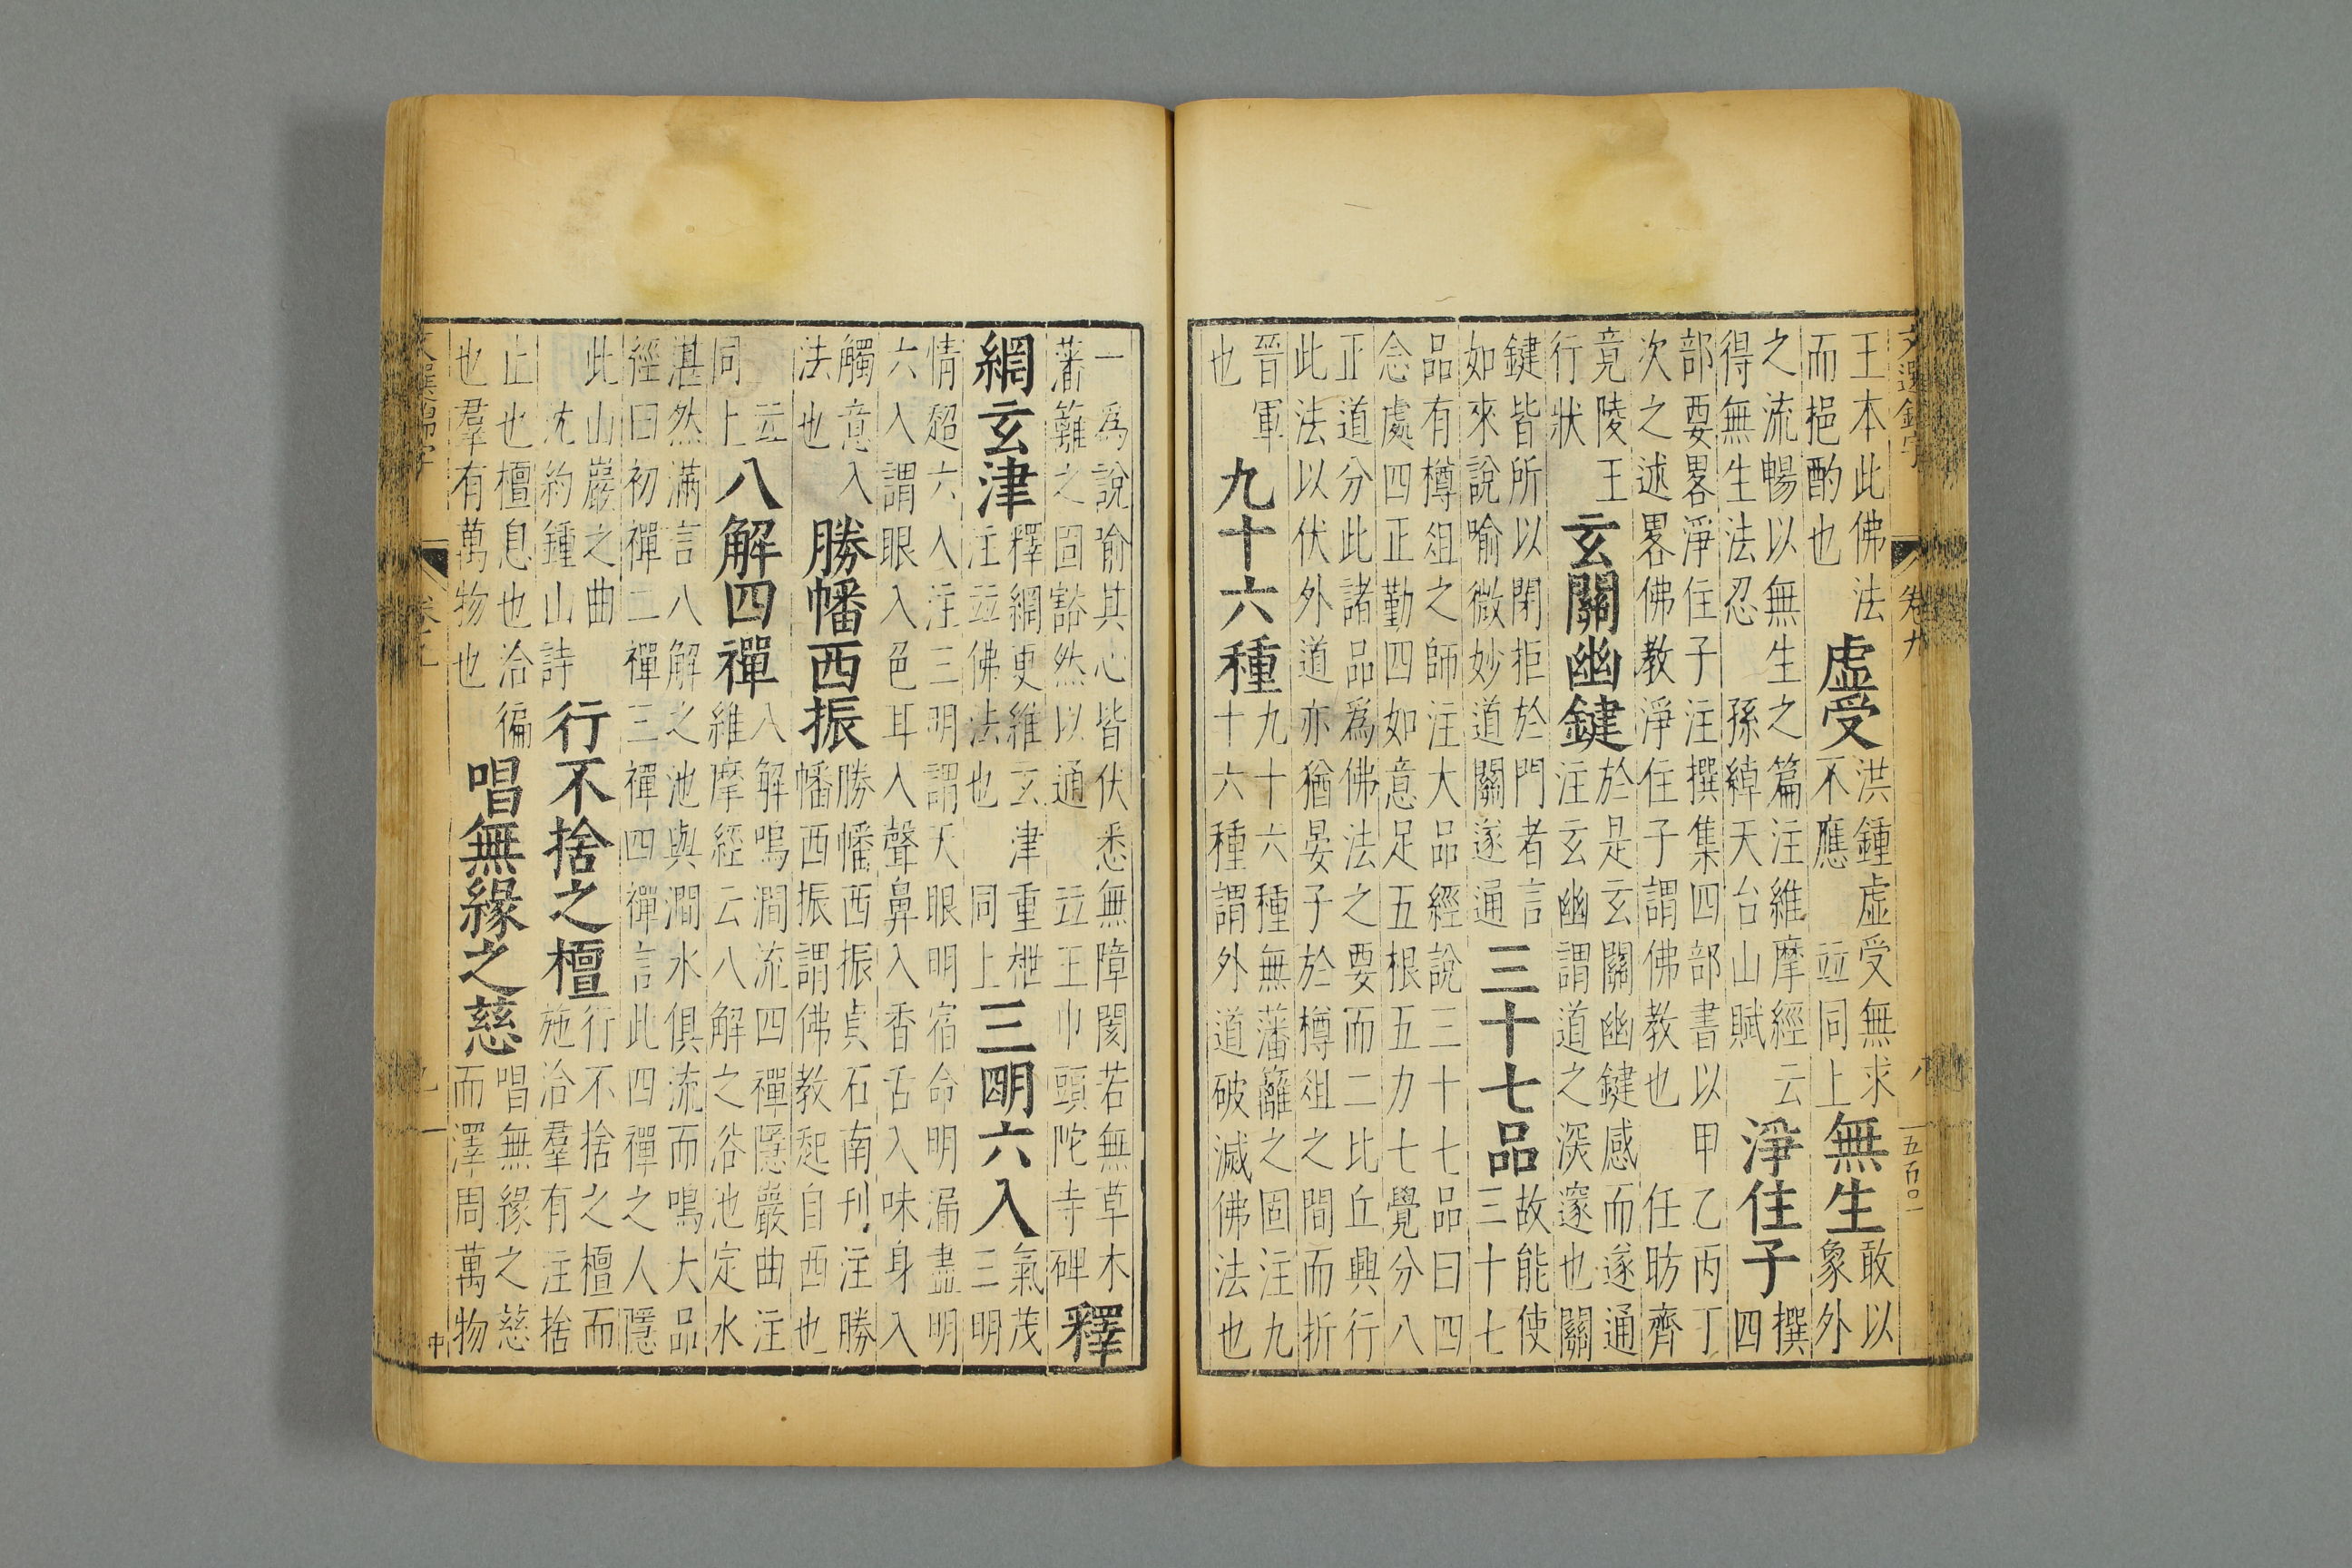 文選錦字 卷九 八 五百〇一
王本此佛法
而挹酌也
虛受
洪鍾虛受無求
不應 並同上
無生
敢以
象外
之流暢以無生之篇注維摩經云
得無生法忍 孫綽天台山賦
淨住子
撰
四
部要畧淨住子注撰集四部書以甲乙丙丁
次之述畧佛教淨住子謂佛教也 任昉齊
竟陵王
行狀
玄關幽鍵
於是玄關幽鍵感而遂通
注玄幽謂道之深邃也關
鍵皆所以閉拒於門者言
如來說喻微妙道關遂通
三十七品
故能使
三十七
品有樽俎之師注大品經說三十七品曰四
念處四正勤四如意足五根五力七覺分八
正道分此諸品爲佛法之要而二比丘興行
此法以伏外道亦猶晏子於樽俎之間而折
晉軍
也
九十六種
九十六種無藩籬之固注九
十六種謂外道破滅佛法也
一爲說喻其心皆伏悉無障閡若無草木
藩籬之固豁然以通 並王巾頭陀寺碑
釋
網玄津
釋網更維玄津重枻
注並佛法也 同上
三明六入
氣茂
三明
情超六入注三明謂天眼明宿命明漏盡明
六入謂眼入色耳入聲鼻入香舌入味身入
觸意入
法也
勝幡西振
勝幡西振貞石南刊注勝
幡西振謂佛教起自西也
並
同上
八解四禪
八解鳴澗流四禪隱巖曲注
維摩經云八解之浴池定水
湛然滿言八解之池與澗水俱流而鳴大品
經曰初禪二禪三禪四禪言此四禪之人隱
此山巖之曲
沈約鍾山詩
行不捨之檀
行不捨之檀而
施洽羣有注捨
止也檀息也洽徧
也羣有萬物也
唱無緣之慈
唱無緣之慈
而澤周萬物